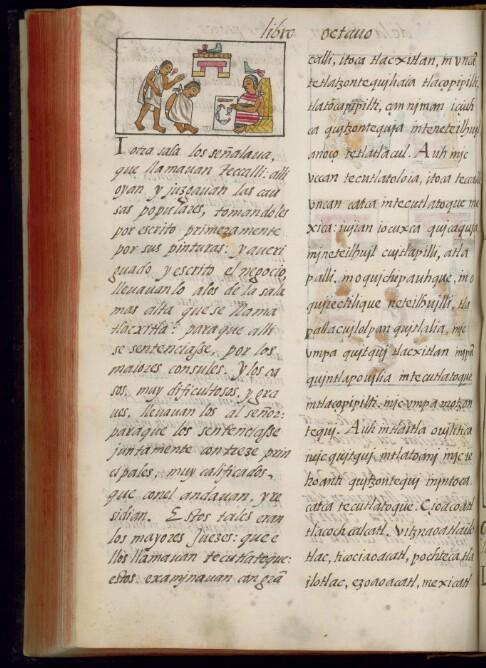 libro octauo
Iotra sala los señalaua,
que llamauan teccalli: alli
oyan y juzgauan las cau
sas populares, tomandoles
por escrito primeramente
por sus pinturas: y aueri
guado y escrito el negocio,
lleuauanlo a los de la sala
mas alta que se llama
tlacxitla: para que alli
se sentenciasse, por los
maiores consules. Y los ca
sos, muy dificultosos, y gra
ues, lleuauan los al señor:
para que los sentenciasse
juntamente con treze prin
cipales, muy calificados,
que con el andauan, y re
sidian. Estos tales eran
los mayores juezes: que e
llos llamauan tecutlatoque:
estos examinauan con grã
calli, itoca tlacxitlan, in vncã
tetlatzontequiliaia tlaçopipilti,
tlatocapipilti, çan niman iciuh
ca quitzontequia in inneteilhuil
anoço tetlatlacul. Auh inic
vccan tecutlatoloia, itoca teccalli
vncan catca in tecutlatoque me
xica: iuian iocuxca quicaquia
in ineteilhuil cuitlapilli, atla
palli, moquichpauhque, in o
quipechtique neteilhuilli, tla
pallacuilolpan quitlalia, inic
vmpa quitqui tlacxitlan inpã
quintlapouilia in tecutlatoque
in tlaçopipilti: inic vmpa motzon
tequi. Auh in tleintla ouilitica
iuic quitqui in tlatoani inic ie
hoanti quitzontequi inintoca
catca tecutlatoque. Cioacoatl
tlacochcalcatl. Vitznaoatlailo
tlac, ticociaoacatl, pochtecatla
ilotlac, ezoaoacatl, mexicatl